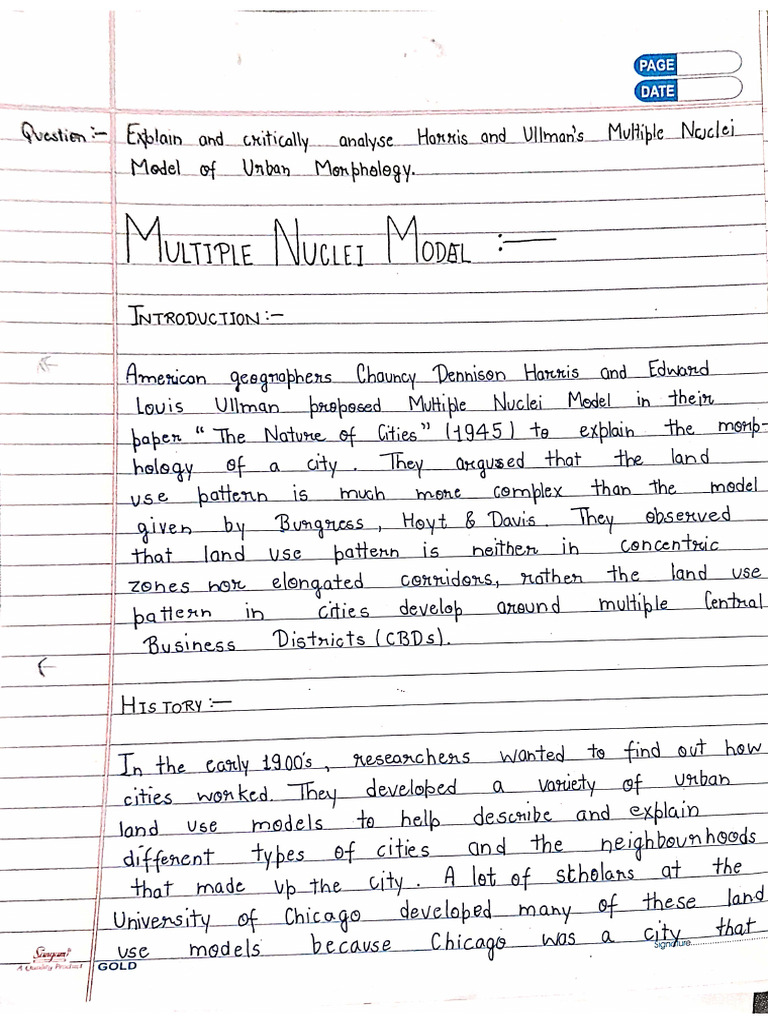 PAGE
DATE
Question :- Explain and critically analyse Harris and Ullman's Multiple Nuclei
Model of Urban Morphology.
MULTIPLE NUCLEI MODAL :—
INTRODUCTION :-
American geographers Chauncy Dennison Harris and Edward
Louis Ullman proposed Multiple Nuclei Model in their
paper "The Nature of Cities" (1945) to explain the morp-
hology of a city. They argused that the land
use pattern is much more complex than the model
given by Burgress, Hoyt & Davis. They observed
that land use pattern is neither in concentric
zones nor elongated corridors, rather the land use
pattern in cities develop around multiple Central
Business Districts (CBDs).
HISTORY :-
In the early 1900's, researchers wanted to find out how
cities worked. They developed a variety of urban
land use models to help describe and explain
different types of cities and the neighbourhoods
that made up the city. A lot of scholars at the
University of Chicago developed many of these land
use models because Chicago was a city that
Signature
A Quality Product GOLD